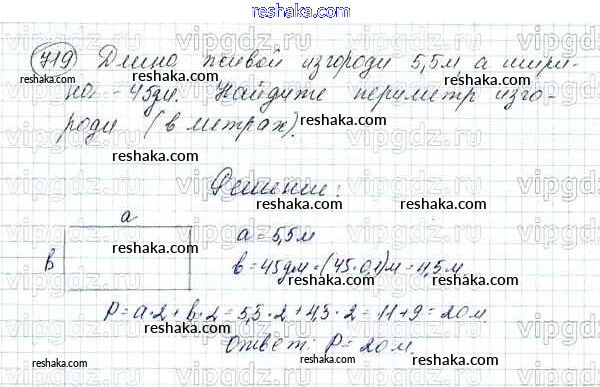 reshaka.com
719 Длина живой изгороди 5,5м а шири-
на - 45дм. Найдите периметр изго-
роди (в метрах).
Решение:
a
a = 5,5м
в
в = 45дм = (45·0,1)м = 4,5м
P = a·2 + b·2 = 5,5·2 + 4,5·2 = 11+9 = 20м
Ответ: P = 20м.